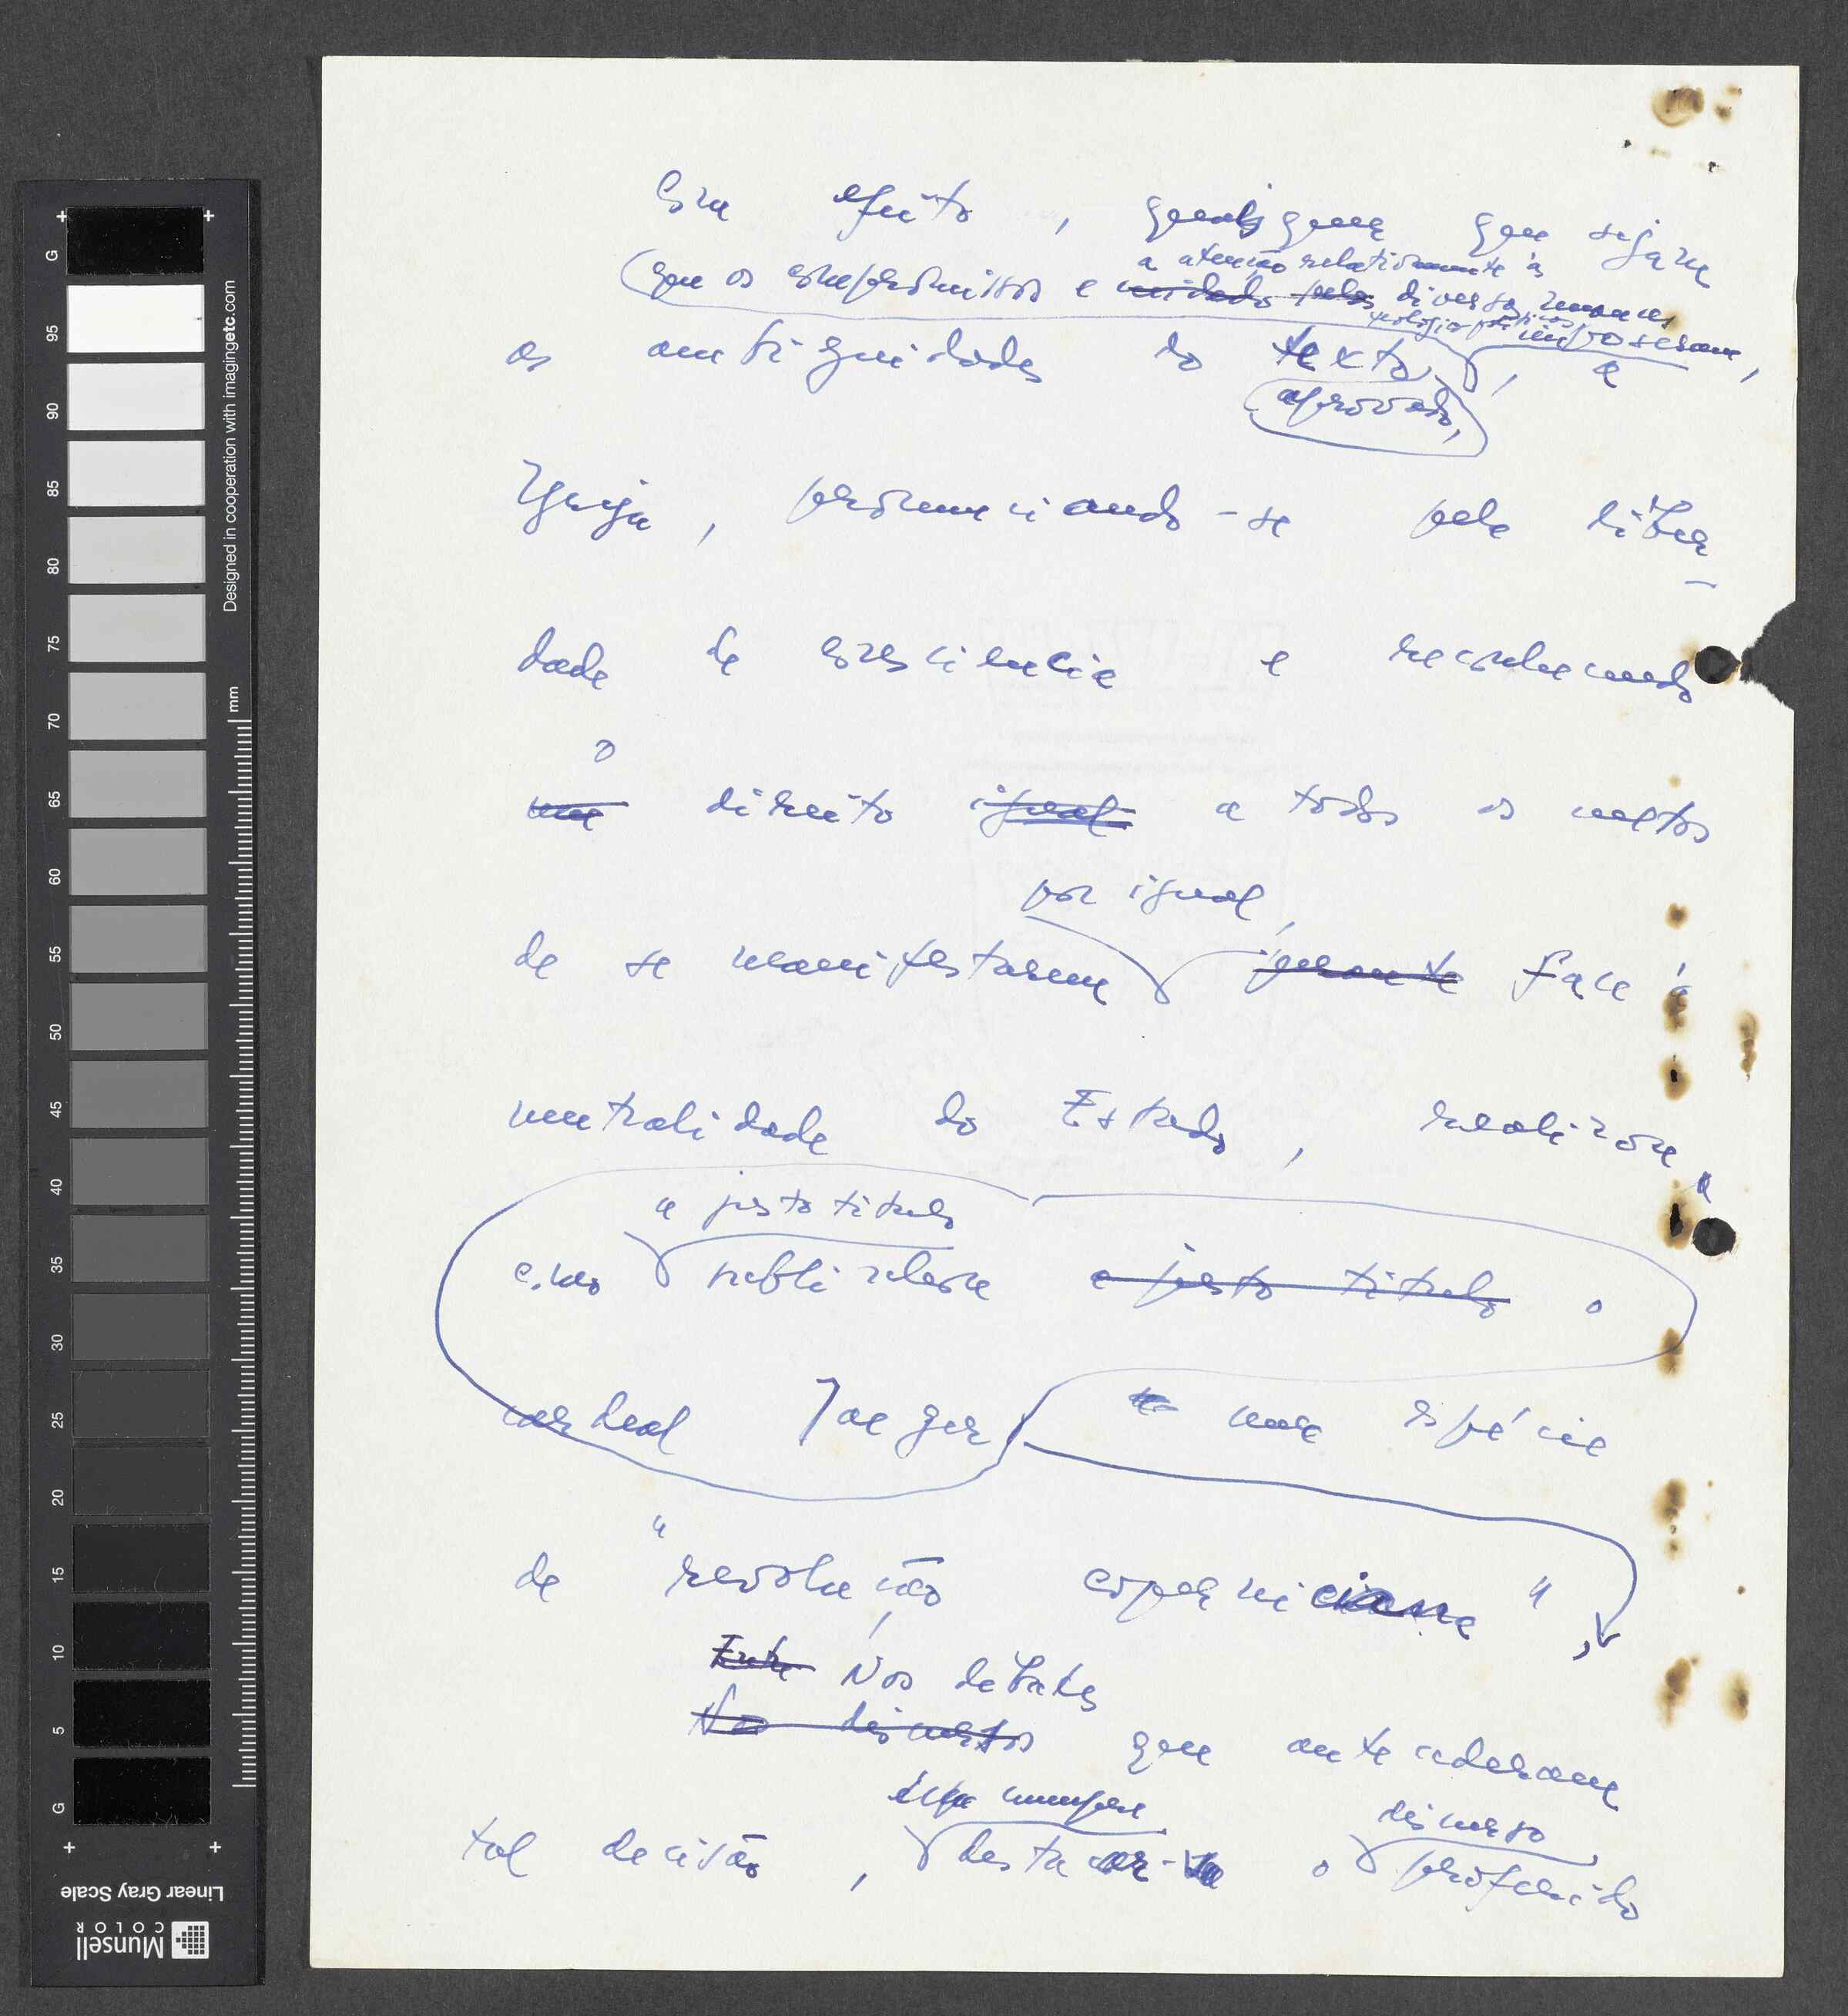 Com efeito, quaisquer que sejam
a atenção relativamente às
(que os compromissos e cuidado pelas diversas
teológico-políticas impuseram,
as ambiguidades do texto, a
aprovado,
Igreja, pronunciando-se pela liber-
dade de consciência e reconhecendo
o
um direito igual a todos os cultos
por igual,
de se manifestarem perante face à
neutralidade do Estado, realizou,
a justo título
como sublinhou a justo título o
cardeal Jaeger, uma espécie
de "revolução coperniciana",
Entre Nos debates
No discursos que antecederam
tal decisão, destacar-se o proferido
cumpre
discurso
Designed in cooperation with imagingetc.com
mm
G
95
90
85
80
75
70
65
60
55
50
45
40
35
30
25
20
15
10
5
G
Linear Gray Scale
Munsell
COLOR